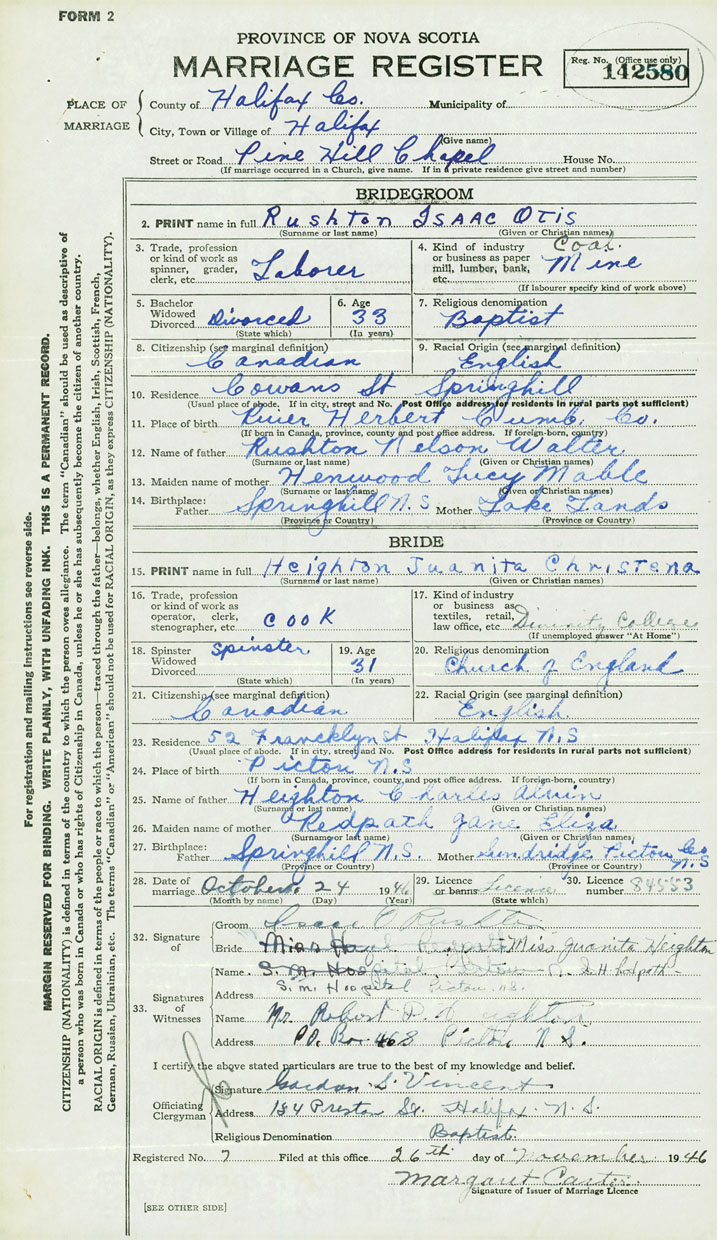 FORM 2
PROVINCE OF NOVA SCOTIA
MARRIAGE REGISTER
Reg. No. (Office use only)
142580
PLACE OF MARRIAGE
County of Halifax Co. Municipality of
City, Town or Village of Halifax
(Give name)
Street or Road Pine Hill Chapel House No.
(If marriage occurred in a Church, give name. If in a private residence give street and number)
BRIDEGROOM
2. PRINT name in full Rushton Isaac Otis
(Surname or last name) (Given or Christian names)
3. Trade, profession or kind of work as spinner, grader, clerk, etc. Laborer
4. Kind of industry or business as paper mill, lumber, bank, etc. Coal Mine
(If labourer specify kind of work above)
5. Bachelor Widowed Divorced Divorced
(State which)
6. Age 33
(In years)
7. Religious denomination
Baptist
8. Citizenship (see marginal definition)
Canadian
9. Racial Origin (see marginal definition)
English
10. Residence Cowans St Springhill
(Usual place of abode. If in city, street and No. Post Office address for residents in rural parts not sufficient)
11. Place of birth River Herbert Cumb. Co.
(If born in Canada, province, county and post office address. If foreign-born, country)
12. Name of father Rushton Nelson Walter
(Surname or last name) (Given or Christian names)
13. Maiden name of mother Henwood Lucy Mable
(Surname or last name) (Given or Christian names)
14. Birthplace: Father Springhill N.S Mother Lake Lands
(Province or Country) (Province or Country)
BRIDE
15. PRINT name in full Heighton Juanita Christena
(Surname or last name) (Given or Christian names)
16. Trade, profession or kind of work as operator, clerk, stenographer, etc. Cook
17. Kind of industry or business as textiles, retail, law office, etc. Divinity College
(If unemployed answer "At Home")
18. Spinster Widowed Divorced Spinster
(State which)
19. Age 31
(In years)
20. Religious denomination
Church of England
21. Citizenship (see marginal definition)
Canadian
22. Racial Origin (see marginal definition)
English
23. Residence 52 Francklyn St Halifax N.S
(Usual place of abode. If in city, street and No. Post Office address for residents in rural parts not sufficient)
24. Place of birth Pictou N.S
(If born in Canada, province, county, and post office address. If foreign-born, country)
25. Name of father Heighton Charles Alvin
(Surname or last name) (Given or Christian names)
26. Maiden name of mother Redpath Jane Eliza
(Surname or last name) (Given or Christian names)
27. Birthplace: Father Springhill N.S. Mother Sundridge Pictou Co N.S
(Province or Country) (Province or Country)
28. Date of marriage October 24 1946
(Month by name) (Day) (Year)
29. Licence or banns License
(State which)
30. Licence number 84553
32. Signature of
Groom Isaac O Rushton
Bride Miss Juanita Heighton
33. Signatures of Witnesses
Name S. M. Hospital
Address S. M. Hospital Pictou N.S.
Name Mr. Robert D. Heighton
Address P.O. Box 463 Pictou N.S.
I certify the above stated particulars are true to the best of my knowledge and belief.
Officiating Clergyman
Signature Gordon S. Vincent
Address 184 Preston St. Halifax. N.S.
Religious Denomination Baptist
Registered No. 7 Filed at this office 26th day of November 1946
Margaret Carter
Signature of Issuer of Marriage Licence
[SEE OTHER SIDE]
For registration and mailing instructions see reverse side.
MARGIN RESERVED FOR BINDING. WRITE PLAINLY, WITH UNFADING INK. THIS IS A PERMANENT RECORD.
CITIZENSHIP (NATIONALITY) is defined in terms of the country to which the person owes allegiance. The term "Canadian" should be used as descriptive of
a person who was born in Canada or who has rights of Citizenship in Canada, unless he or she has subsequently become the citizen of another country.
RACIAL ORIGIN is defined in terms of the people or race to which the person—traced through the father—belongs, whether English, Irish, Scottish, French,
German, Russian, Ukrainian, etc. The terms "Canadian" or "American" should not be used for RACIAL ORIGIN, as they express CITIZENSHIP (NATIONALITY).